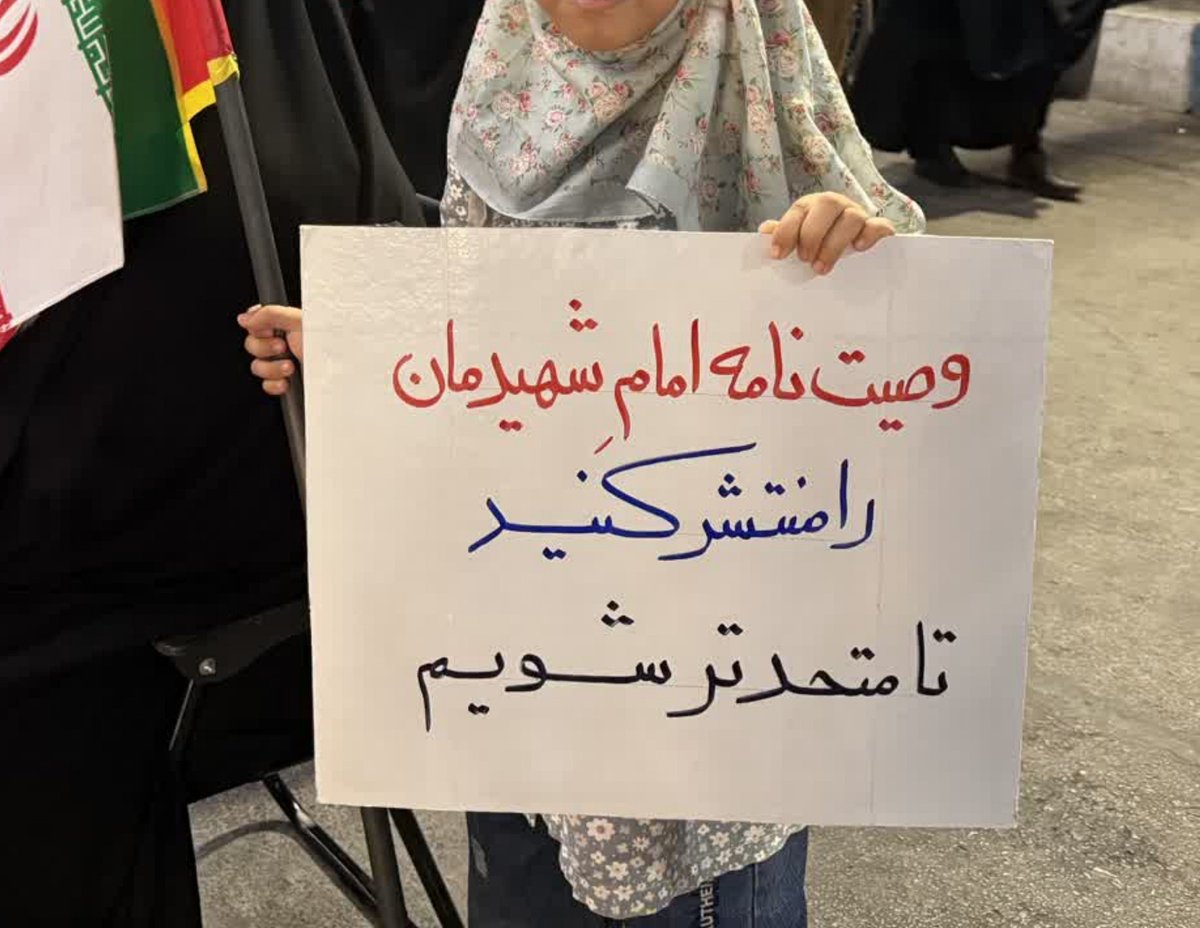 وصیت نامه امامِ شهیدمان
را منتشر کنید
تا متحدتر شویم